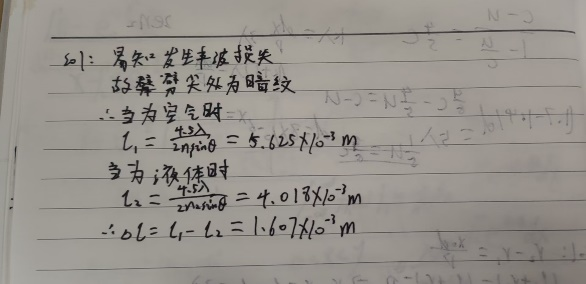 sol: 易知发生半波损失
故劈劈尖处为暗纹
∴当为空气时
l₁ = 4.5λ/2n₁sinθ = 5.625×10⁻³ m
当为液体时
l₂ = 4.5λ/2n₂sinθ = 4.018×10⁻³ m
∴ Δl = l₁ - l₂ = 1.607×10⁻³ m